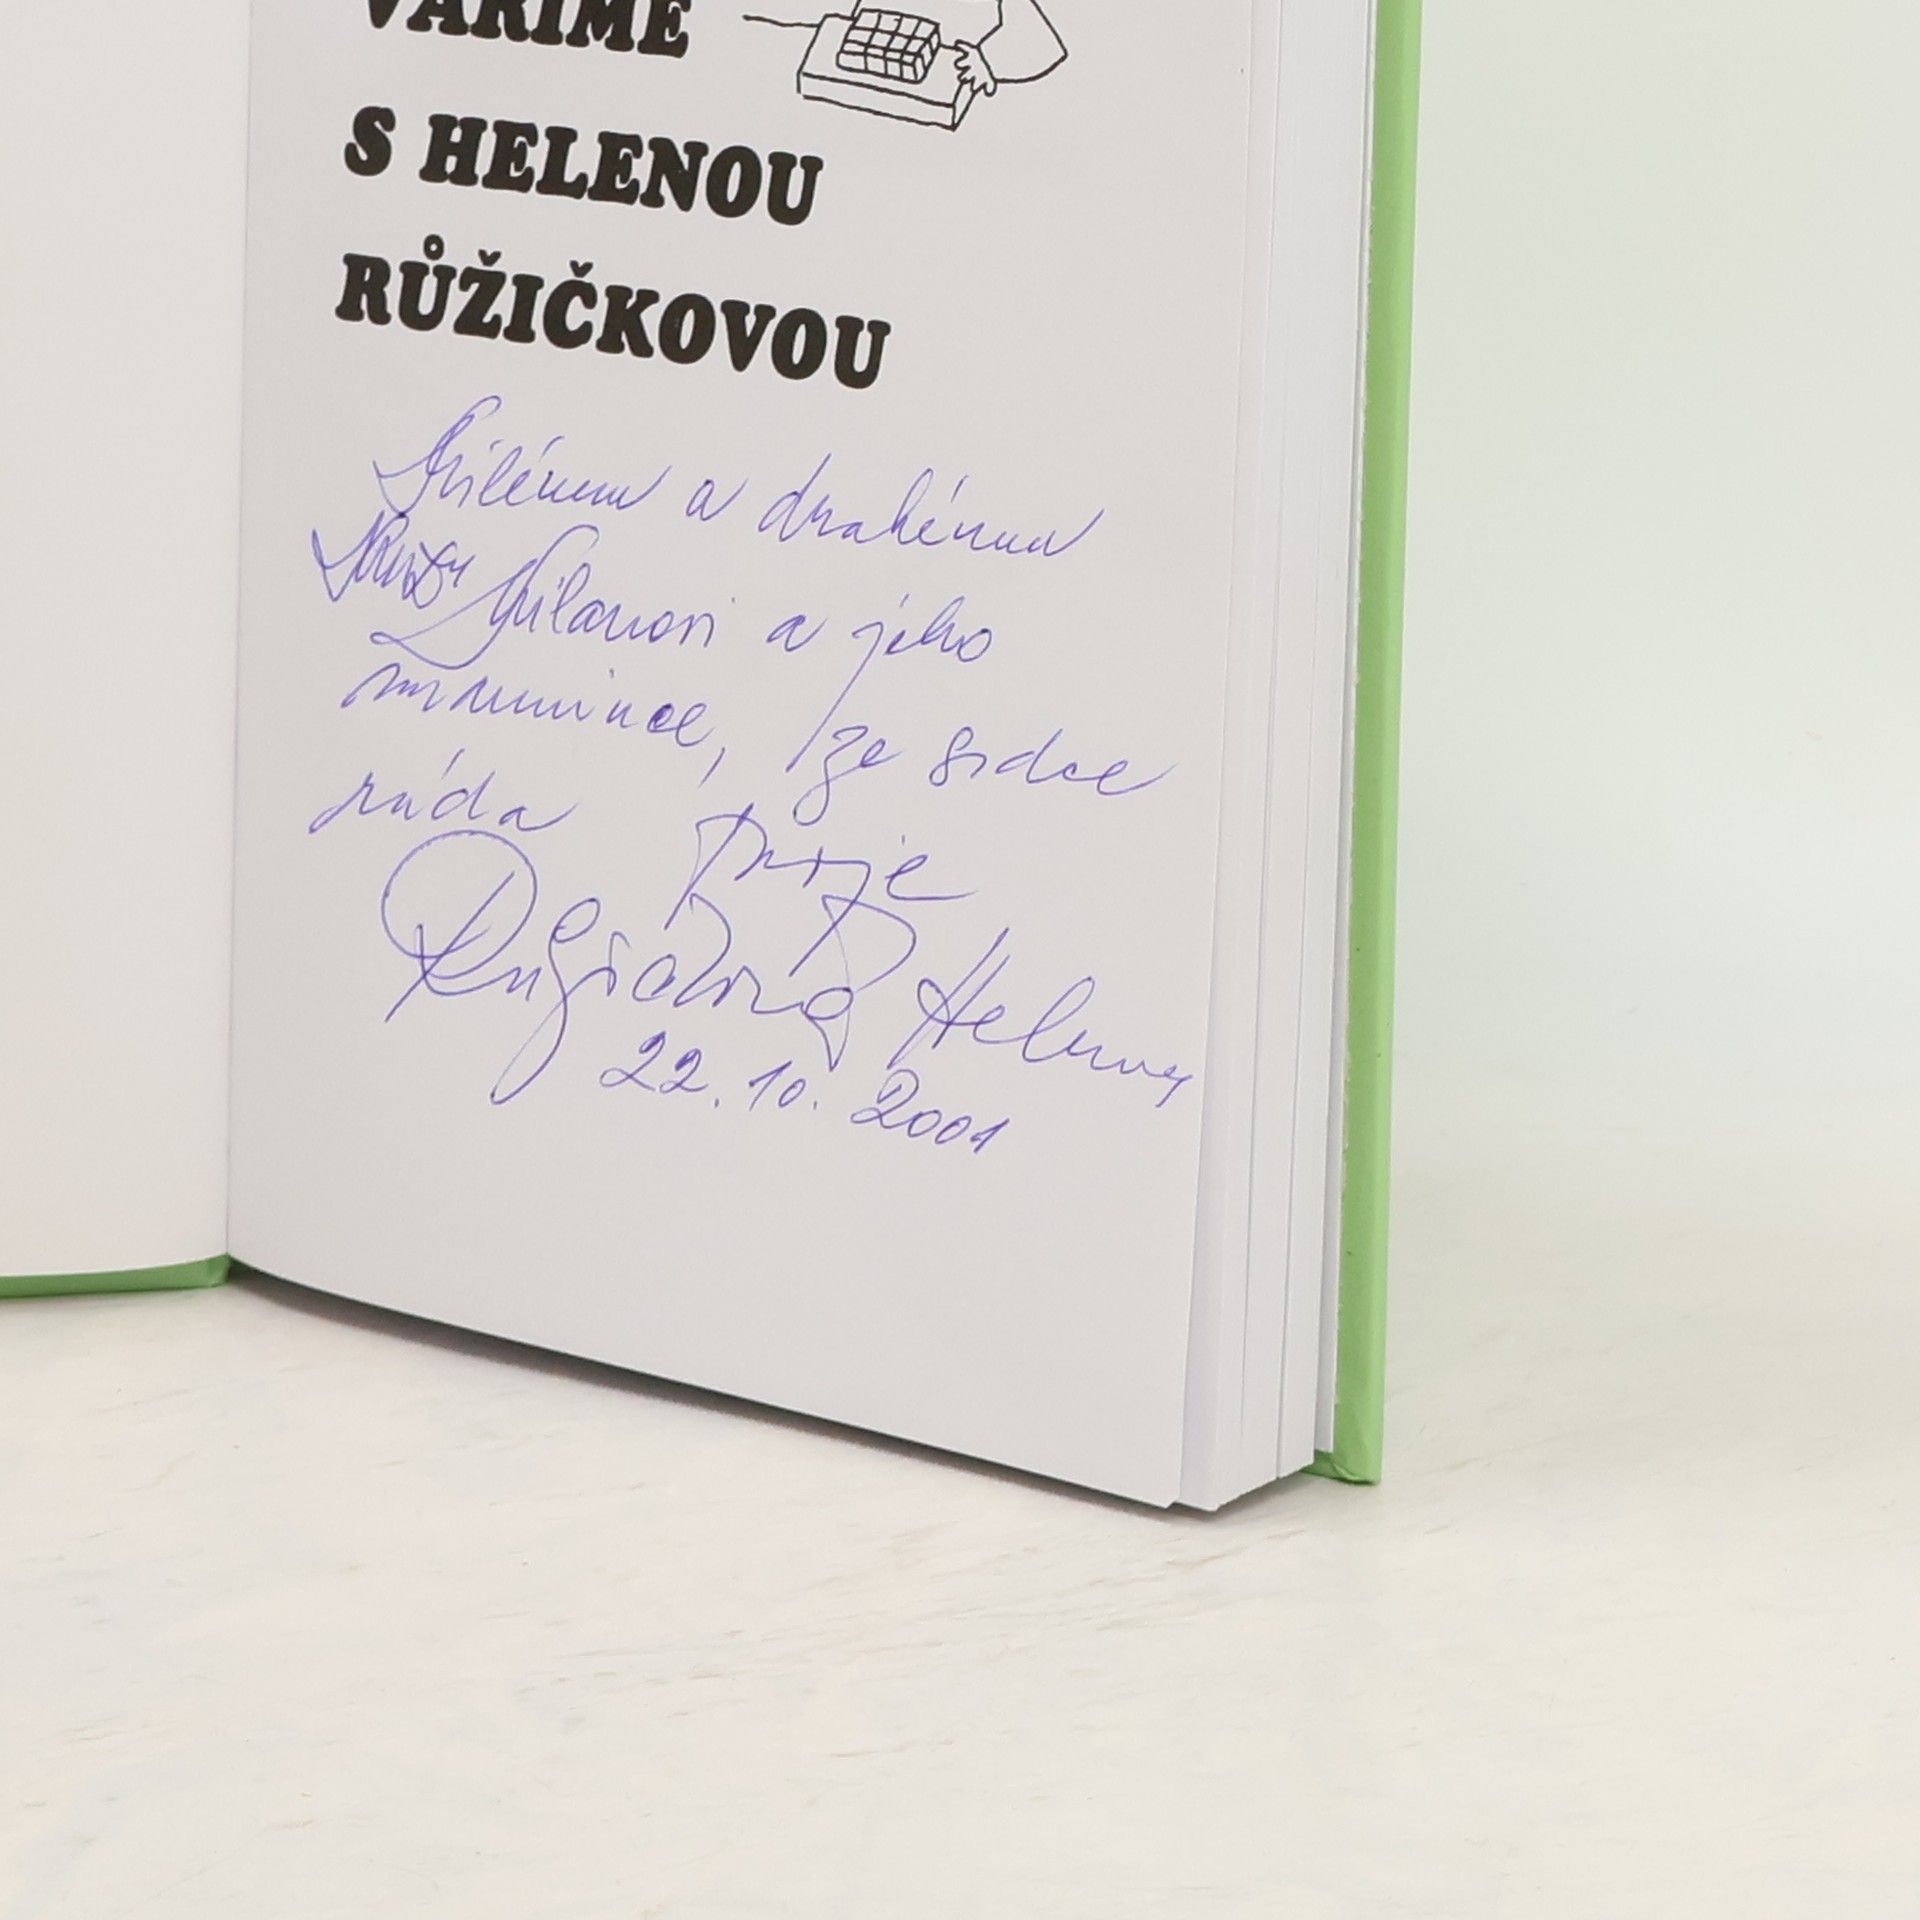 VAŘÍME
S HELENOU
RŮŽIČKOVOU
Milému a drahému
Milanovi a jeho
mamince, ze srdce
ráda Tvoje
Růžičková Helena
22. 10. 2001